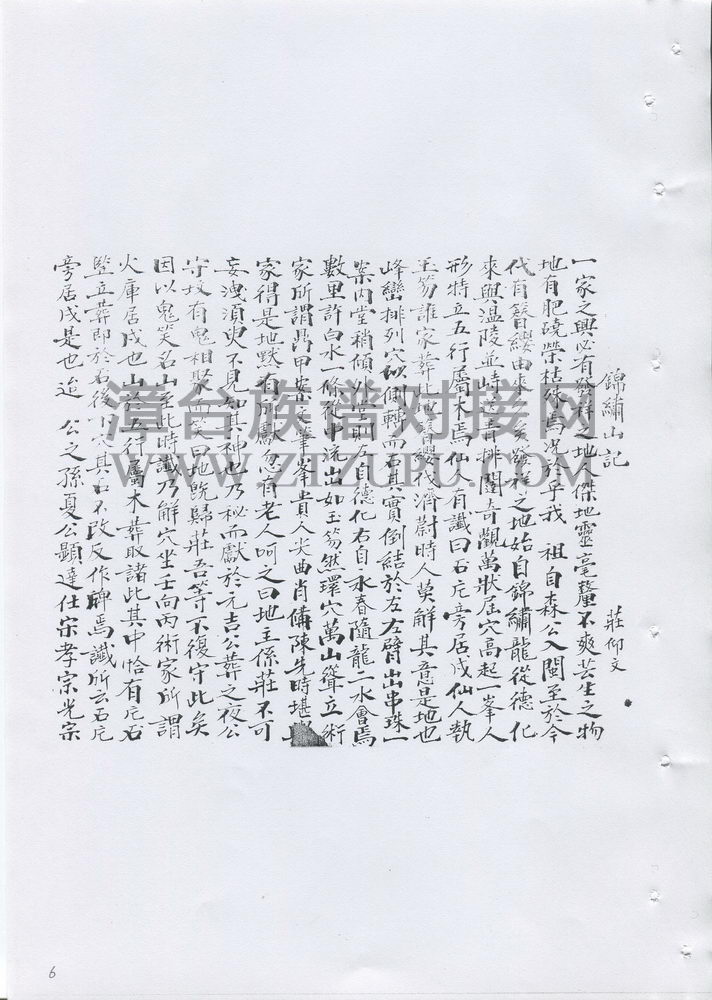 錦繡山記
莊仰文
一家之興必有發祥之地人傑地靈毫釐不爽芸生之物
地有肥磽榮枯殊焉况於乎我 祖自森公入閩至於今
代有簪纓由來矣發祥之地始自錦繡龍從德化
來與溫陵並峙迢青排闥奇觀萬狀屈穴高起一峯人
形特立五行屬木焉仙人有讖曰石広旁居戌仙人執
玉笏誰家葬此地簪纓代濟蔚時人莫解其意是地也
峰巒排列穴似倒轉而右其實倒結於左左臂出串珠一
案內堂稍傾外堂則左自德化右自永春隨龍二水會焉
數里許白水一條從中流出如玉笏然環穴萬山聳立術
家所謂誥甲案文筆峯貴人尖曲肖備陳先時堪
家得是地默有所獻忽有老人呵之曰地主係莊不可
妄洩須臾不見知其神也乃秘而獻於元吉公葬之夜公
守坟有鬼相聚而笑曰地既歸莊吾等不復守此矣
因以鬼笑名山至此時讖乃解穴坐壬向丙術家所謂
火庫居戌也山於五行屬木葬取諸此其中恰有広石
豎立葬即於石後卜穴其石不改反作碑焉讖所云石広
旁居戌是也迨 公之孫夏公顯達仕宋孝宗光宗
漳台族谱对接网
WWW.ZTZUPU.COM
6